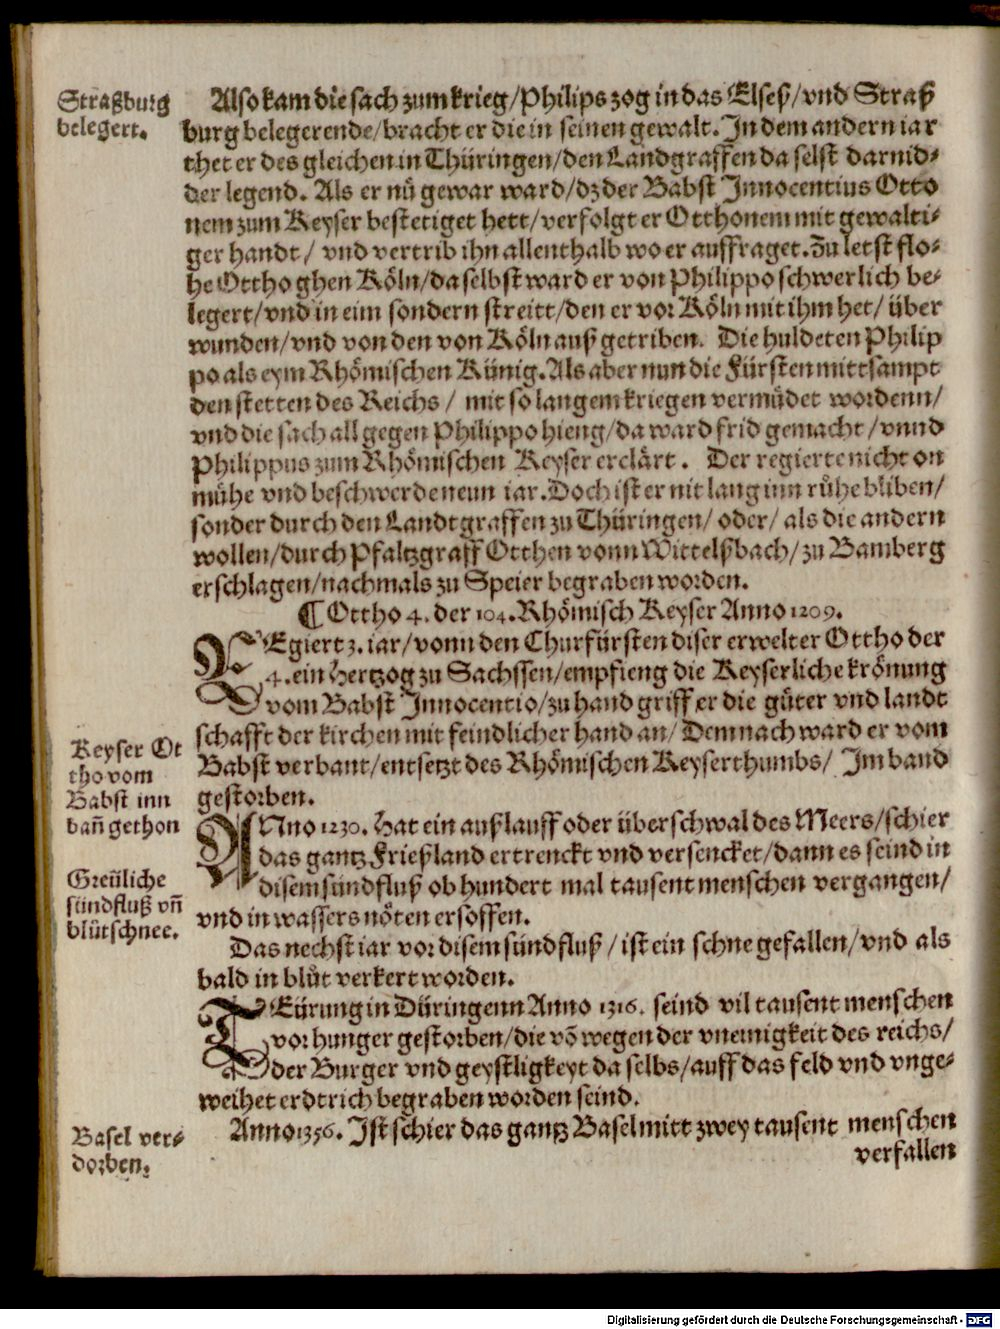 Straßburg
belegert.
Also kam die sach zum krieg/Philips zog in das Elseß/vnd Straß
burg belegerende/bracht er die in seinen gewalt. In dem andern iar
thet er des gleichen in Thüringen/den Landgraffen da selst darnid⸗
der legend. Als er nů gewar ward/dz der Babst Innocentius Otto
nem zum Keyser bestetiget hett/verfolgt er Otthonem mit gewalti⸗
ger handt/ vnd vertrib ihn allenthalb wo er auffraget. Zu letst flo⸗
he Ottho ghen Köln/da selbst ward er von Philippo schwerlich be⸗
legert/vnd in eim sondern streitt/den er vor Köln mit ihm het/ über
wunden/vnd von den von Köln auß getriben. Die huldeten Philip
po als eym Rhömischen Künig. Als aber nun die Fürsten mittsampt
den stetten des Reichs/ mit so langem kriegen vermüdet wordenn/
vnd die sach all gegen Philippo hieng/da ward frid gemacht/vnnd
Philippus zum Rhömischen Keyser erclärt. Der regierte nicht on
mühe vnd beschwerde neun iar. Doch ist er nit lang inn růhe bliben/
sonder durch den Landtgraffen zu Thüringen/ oder/ als die andern
wollen/durch Pfaltzgraff Otthen vonn Wittelßbach/zu Bamberg
erschlagen/nachmals zu Speier begraben worden.
¶ Ottho 4. der 104. Rhömisch Keyser Anno 1209.
REgiert 3. iar/vonn den Churfürsten diser erwelter Ottho der
4. ein Hertzog zu Sachssen/empfieng die Keyserliche krönung
vom Babst Innocentio/zu hand griff er die güter vnd landt
schafft der kirchen mit feindlicher hand an/ Demnach ward er vom
Babst verbant/entsetzt des Rhömischen Keyserthumbs/ Im band
gestorben.
Keyser Ot
tho vom
Babst inn
bañ gethon
ANno 1230. hat ein außlauff oder überschwal des Meers/schier
das gantz Frießland ertrenckt vnd versencket/dann es seind in
disem sündfluß ob hundert mal tausent menschen vergangen/
vnd in wassers nöten ersoffen.
Greüliche
sündfluß vñ
blůtschnee.
Das nechst iar vor disem sündfluß/ist ein schne gefallen/vnd als
bald in blůt verkert worden.
TEürung in Düringenn Anno 1316. seind vil tausent menschen
vor hunger gestorben/die võ wegen der vneinigkeit des reichs/
der Burger vnd geystligkeyt da selbs/auff das feld vnd vnge⸗
weihet erdtrich begraben worden seind.
Basel ver⸗
dorben.
Anno 1356. Ist schier das gantz Basel mitt zwey tausent menschen
verfallen
Digitalisierung gefördert durch die Deutsche Forschungsgemeinschaft - DFG